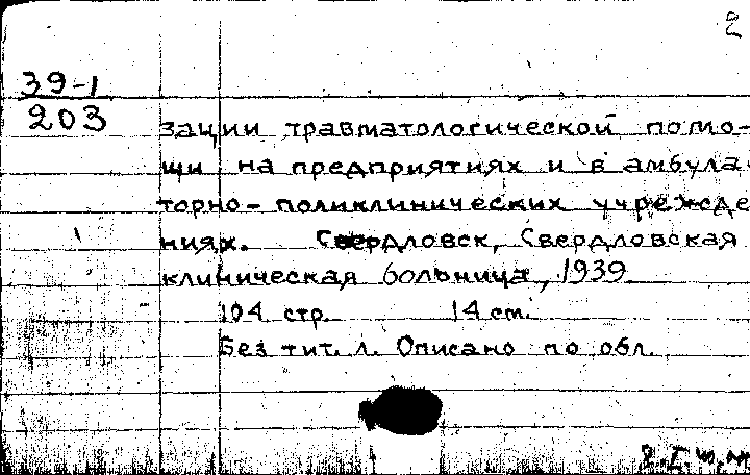 2
39-1
203
зации травматологической помо-
щи на предприятиях и в амбула
торно-поликлинических учрежде
ниях. Свердловск, Свердловская
клиническая больница, 1939
104 стр. 14 см.
Без тит. л. Описано по обл.